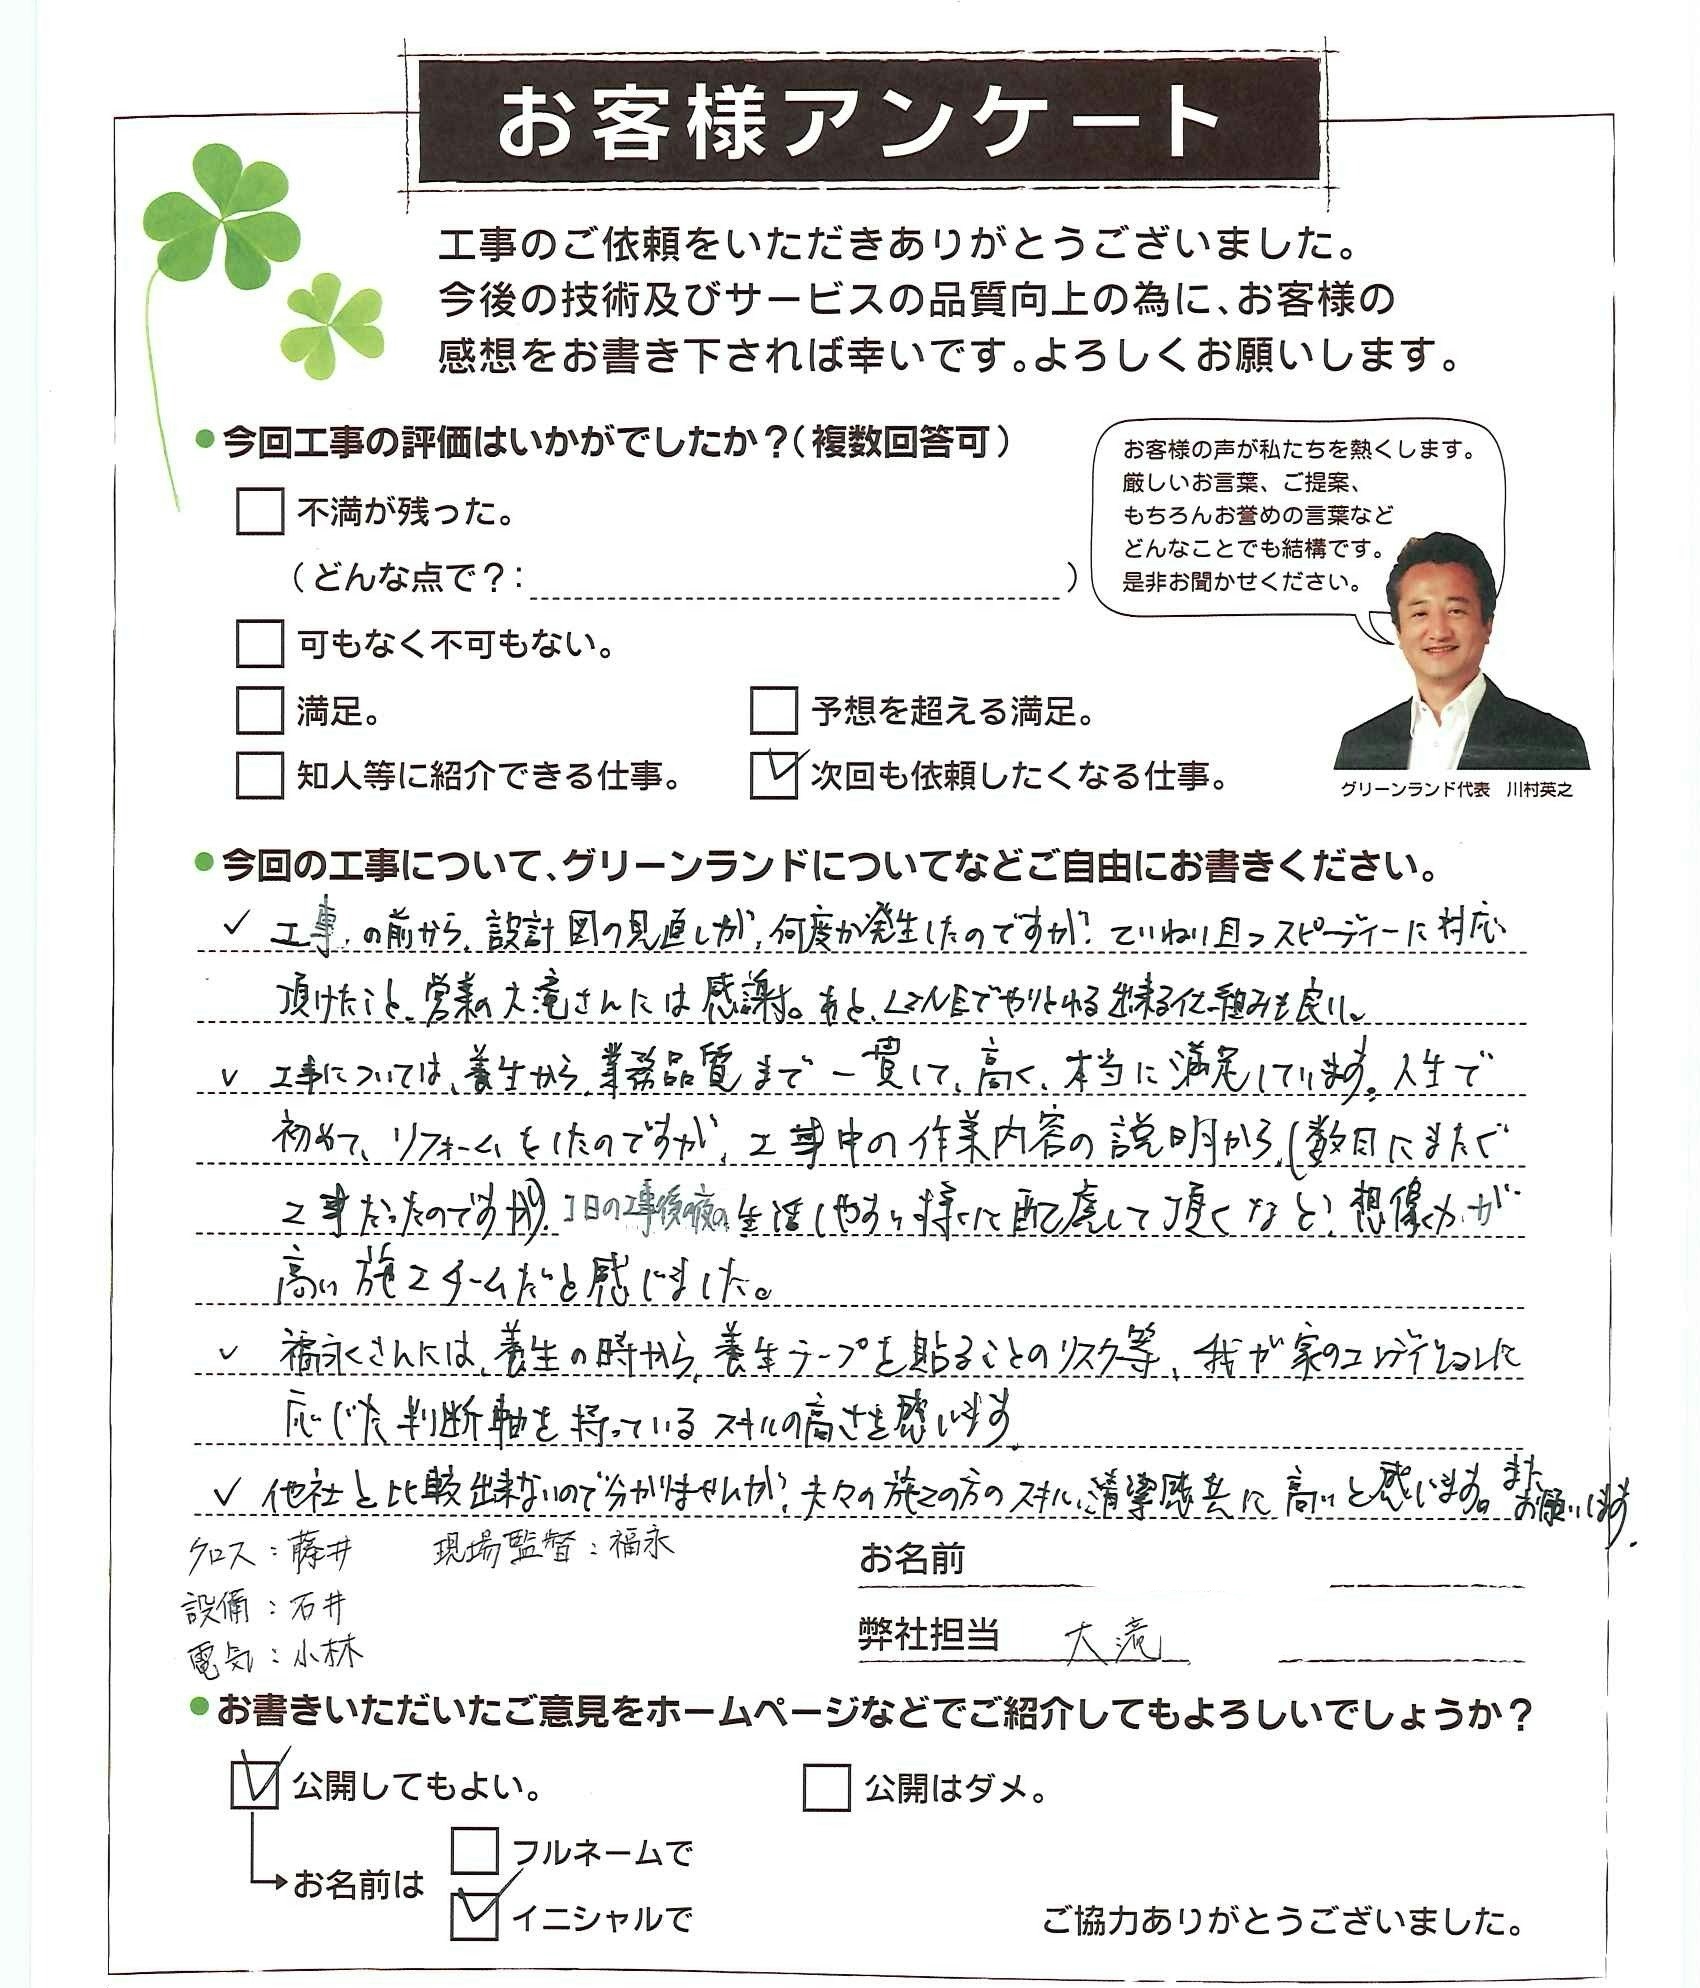 お客様アンケート
工事のご依頼をいただきありがとうございました。
今後の技術及びサービスの品質向上の為に、お客様の
感想をお書き下されば幸いです。よろしくお願いします。
●今回工事の評価はいかがでしたか？(複数回答可)
不満が残った。
(どんな点で？: )
可もなく不可もない。
満足。 予想を超える満足。
知人等に紹介できる仕事。 ✓ 次回も依頼したくなる仕事。
お客様の声が私たちを熱くします。
厳しいお言葉、ご提案、
もちろんお誉めの言葉など
どんなことでも結構です。
是非お聞かせください。
グリーンランド代表 川村英之
●今回の工事について、グリーンランドについてなどご自由にお書きください。
✓ 工事の前から、設計図の見直しが、何度か発生したのですが、ていねい且つスピーディーに対応
頂けたこと、営業の大滝さんには感謝。あと、LINEでやりとり出来る仕組みも良い。
✓ 工事については、養生から、業務品質まで一貫して、高く、本当に満足しています。人生で
初めて、リフォームをしたのですが、工事中の作業内容の説明から、(数日にまたぐ
工事だったのですが)、1日の工事後の夜の、生活しやすい様に配慮して頂くなど、想像力が
高い施工チームだと感じました。
✓ 福永さんには、養生の時から、養生テープを貼ることのリスク等、我が家のコンディションに
応じた判断軸を持っているスキルの高さを感じます。
✓ 他社と比較出来ないので分かりませんが、夫々の施工の方のスキル、清潔感共に高いと感じます。また
お願いします。
クロス：藤井 現場監督：福永
設備：石井
電気：小林
お名前
弊社担当 大滝
●お書きいただいたご意見をホームページなどでご紹介してもよろしいでしょうか？
✓ 公開してもよい。 公開はダメ。
お名前は
フルネームで
✓ イニシャルで
ご協力ありがとうございました。